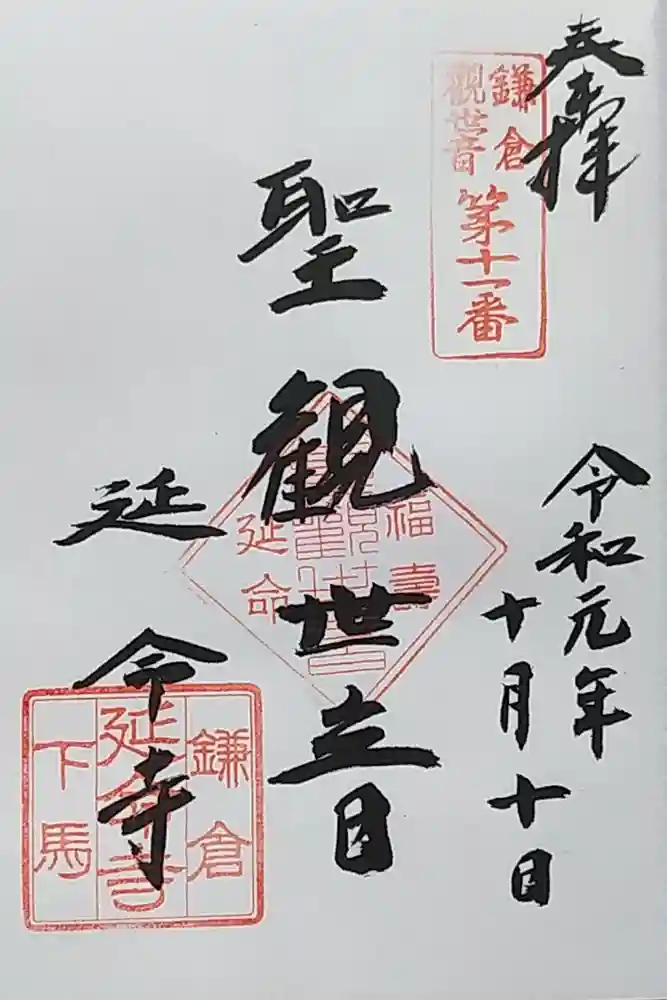 奉拝
鎌倉
観世音
第十一番
令和元年
十月十日
聖観世音
福壽
延命
延命寺
鎌倉
延命寺
下馬